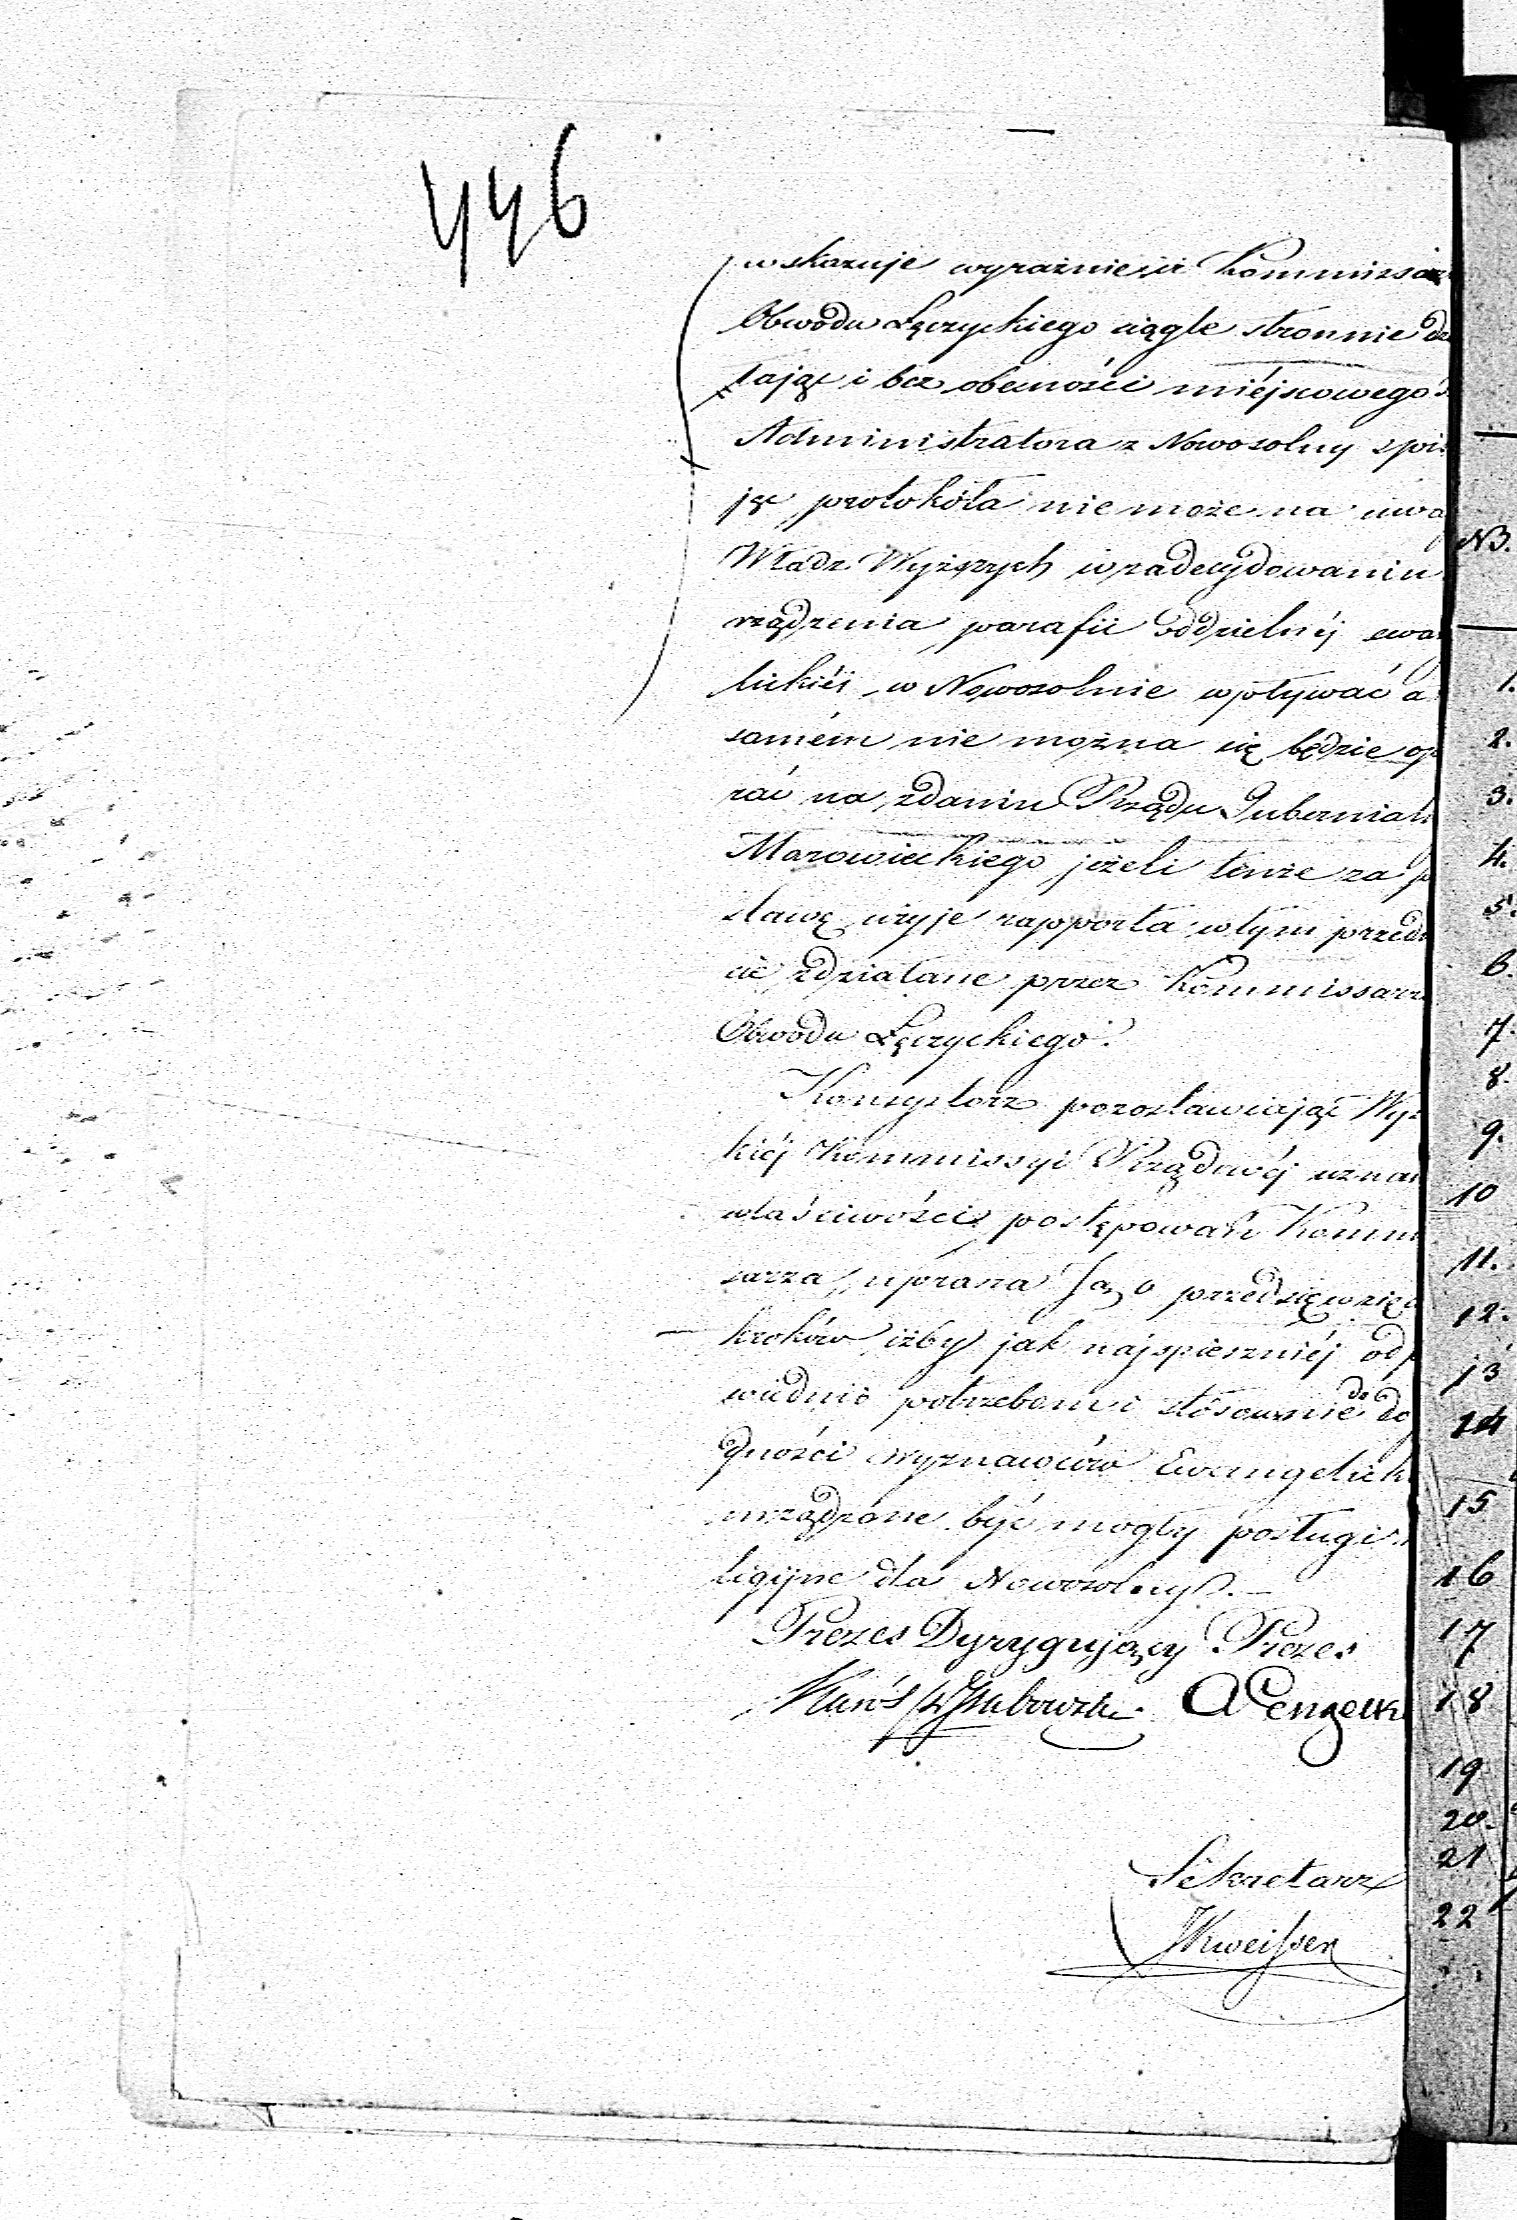 446
wskazuje wyraźnie iż Kommissarz
Obwodu Łęczyckiego ciągle stronnie dz
łając i bez obecności miéjscowego
Administratora z Nowosolny spis
jąc protokóła nie może na uwa
Władz Wyższych w zadecydowaniu
rządzenia parafii oddzielnéj ewa
lickiéj w Nowosolnie wpływać a
samém nie można się będzie op
rać na zdaniu Rządu Gubernial
Mazowieckiego jeżeli tenże za p
stawę użyje rapporta w tym przed
cie zdziałane przez Kommissarz
Obwodu Łęczyckiego.
Konsystorz pozostawiając Wys
kiéj Kommissyi Rządowéj uznan
właściwości postępowań Komm
sarza, uprasza Ją o przedsięwzięc
kroków, iżby jak najspieszniéj odp
wiednio potrzebom i stósownie do do
gności wyznawców Ewangelick
urządzone być mogły posługi
ligijne dla Nowosolny.—
Prezes Dyrygujący Prezes
Sekretarz
NB.
1.
2.
3.
4.
5.
6.
7.
8.
9.
10
11.
12.
13
14
15
16
17
18
19
20.
21
22